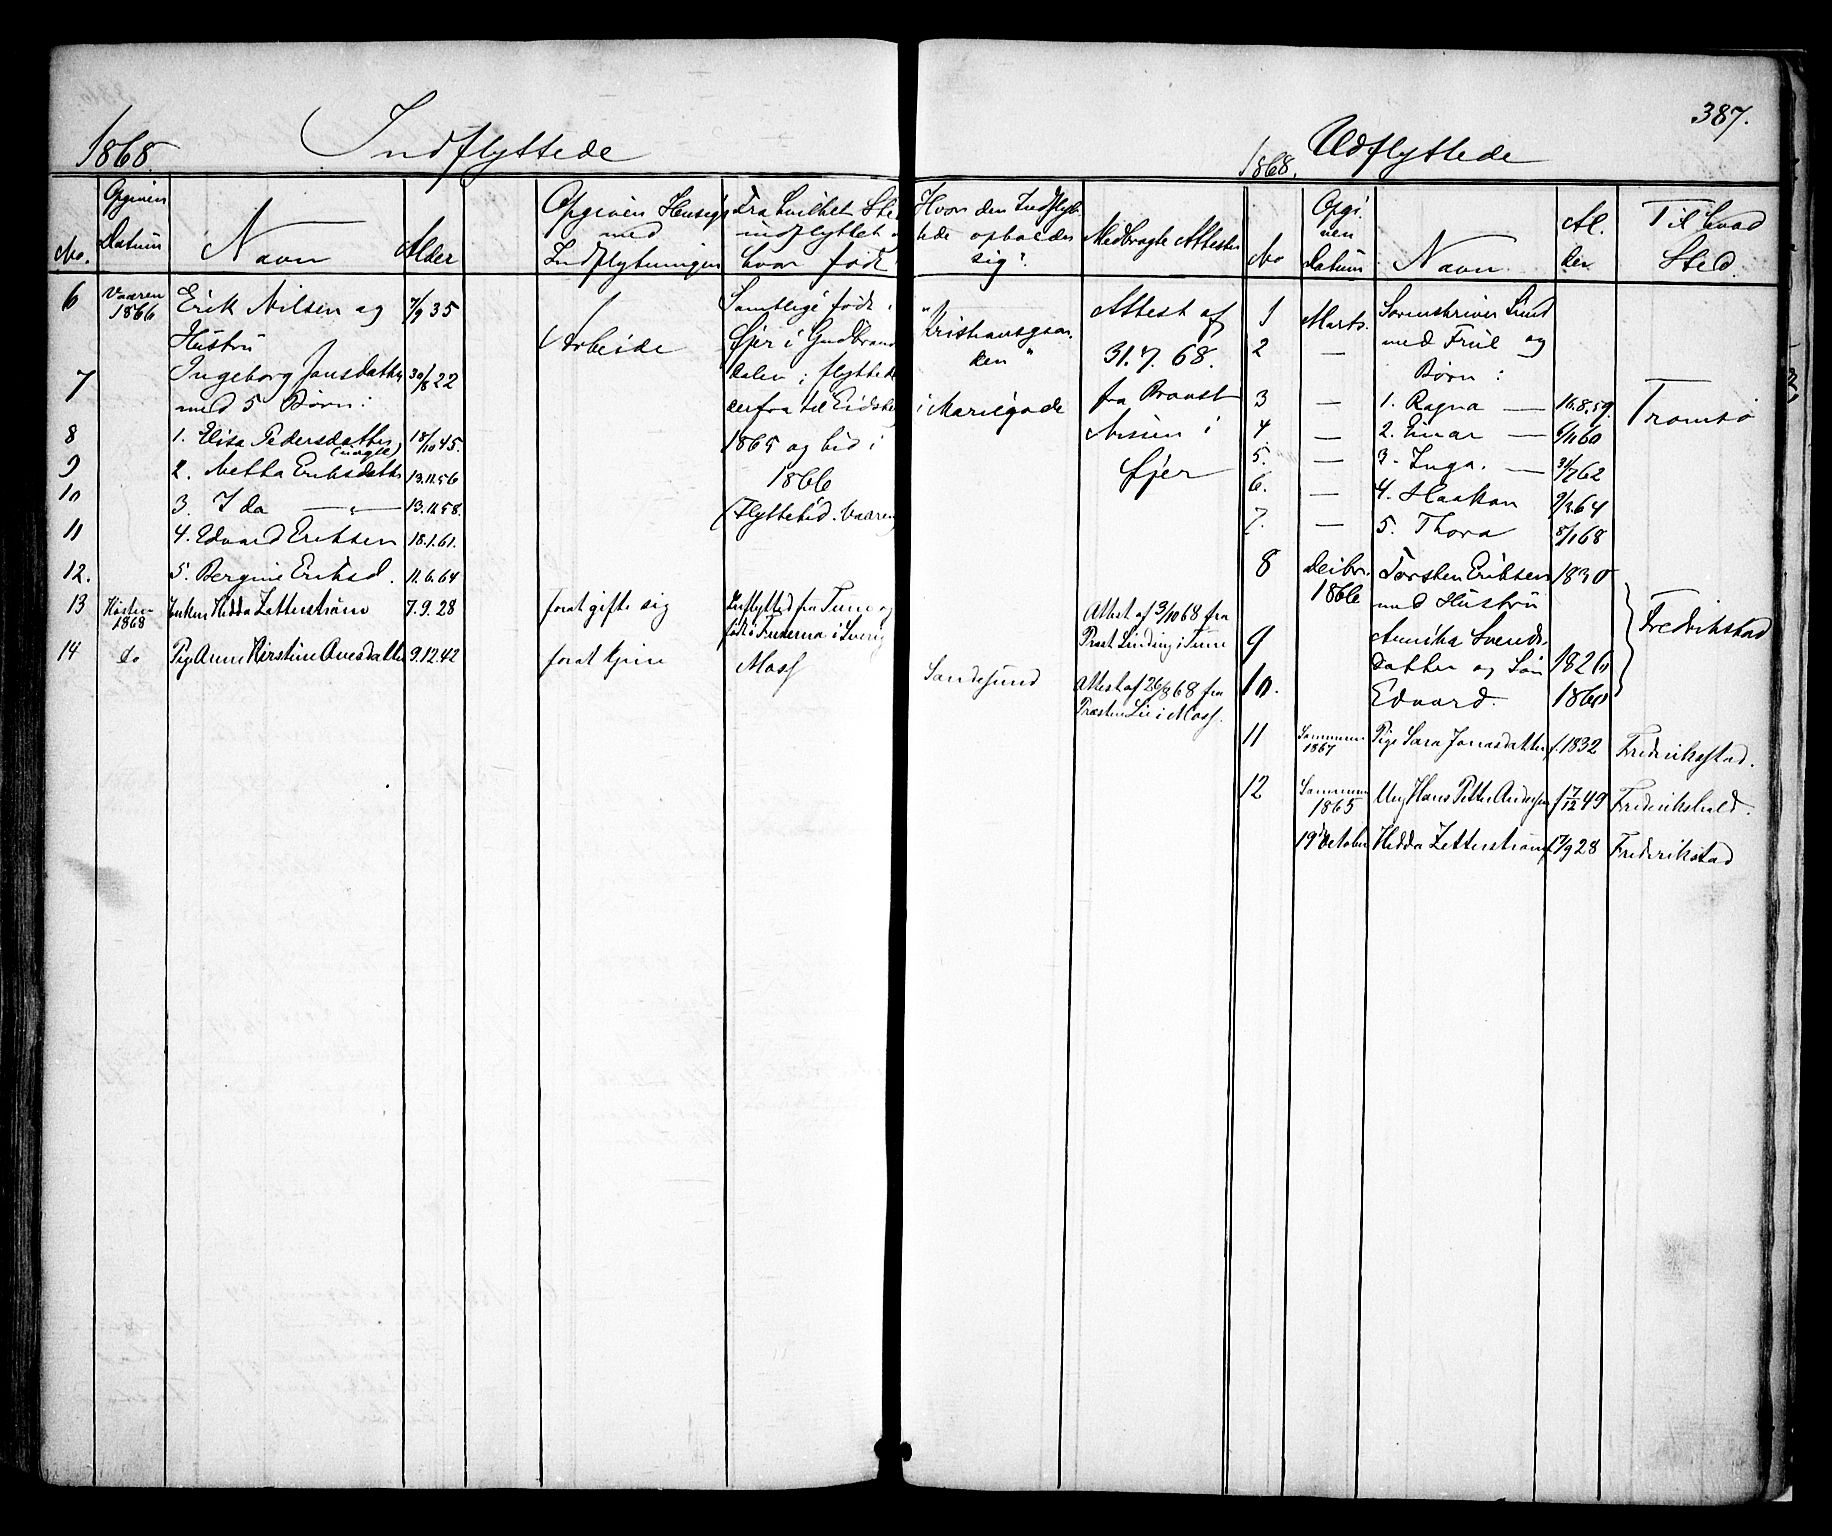 387.
1868. Indflyttede
No.
Opgiven Datum
Navn
Alder
Opgiven Hensigt med Indflytningen
Fra hvilket Sted indflyttet og hvor født
Hvor den Indflyttede opholder sig.
Medbragte Attester
6 Vaaren 1866 Erik Nilsen og 7/9 35
Hustru
7 Ingeborg Jansdatter 30/8 22
med 5 Børn:
8 1. Elisa Pedersdatter 18/10 45.
(uægte)
9 2. Netha Eriksdatter 13.11.56
10 3. Ida — " — 13.11.58.
11 4. Edvard Eriksen 18.1.61.
12. 5. Bergine Eriksd. 11.6.64
Arbeide
Samtlige født i
Øjer i Gudbrands
dalen; flyttede
derfra til Eidsberg
1865 og hid i
1866
(Flyttetid. Vaaren)
"Kristiansgaar
den"
i Mariegade
Attest af
31.7.68.
fra Provst
Nissen i
Øjer
13 Høsten 1868 Enken Hedda Zetterstrøm 7.9.28 forat gifte sig
Indflytted fra Tune og
født i i Sverig
Attest af 3/10 68 fra
Præst Linding i Tune
14 do Pige Anne Kirstine Ovesdatter 9.12.42 forat tjene Moss Sandesund
Attest af 26/8 68 fra
Præsten Lie i Moss.
1868. Udflyttede
No
Opgiven Datum
Navn.
Alder
Til hvad Sted.
1 Marts. Sorenskriver Lund
2 — med Frue og
Børn:
3 — 1. Ragna — 16.8.59.
4 — 2. Einar — 6/11 60
5. — 3. Inga. — 31/7 62
6. — 4. Haakon 9/3 64
7. — 5. Thora 5/1 68
Tromsø
8 Decbr. 1866 Torsten Eriksen 1830
med Hustru
9 Annika Svends
datter og Søn 1826
10. Edvard. 1860
Fredrikstad
11 Sommeren 1867 Pige Sara Jonasdatter f. 1832 Frederikstad.
12 Sommeren 1865 Ung Hans Petter Andersen f 17/12 49 Frederikshald.
19 October Hedda Zetterstrøm f. 7/9 28 Frederikstad